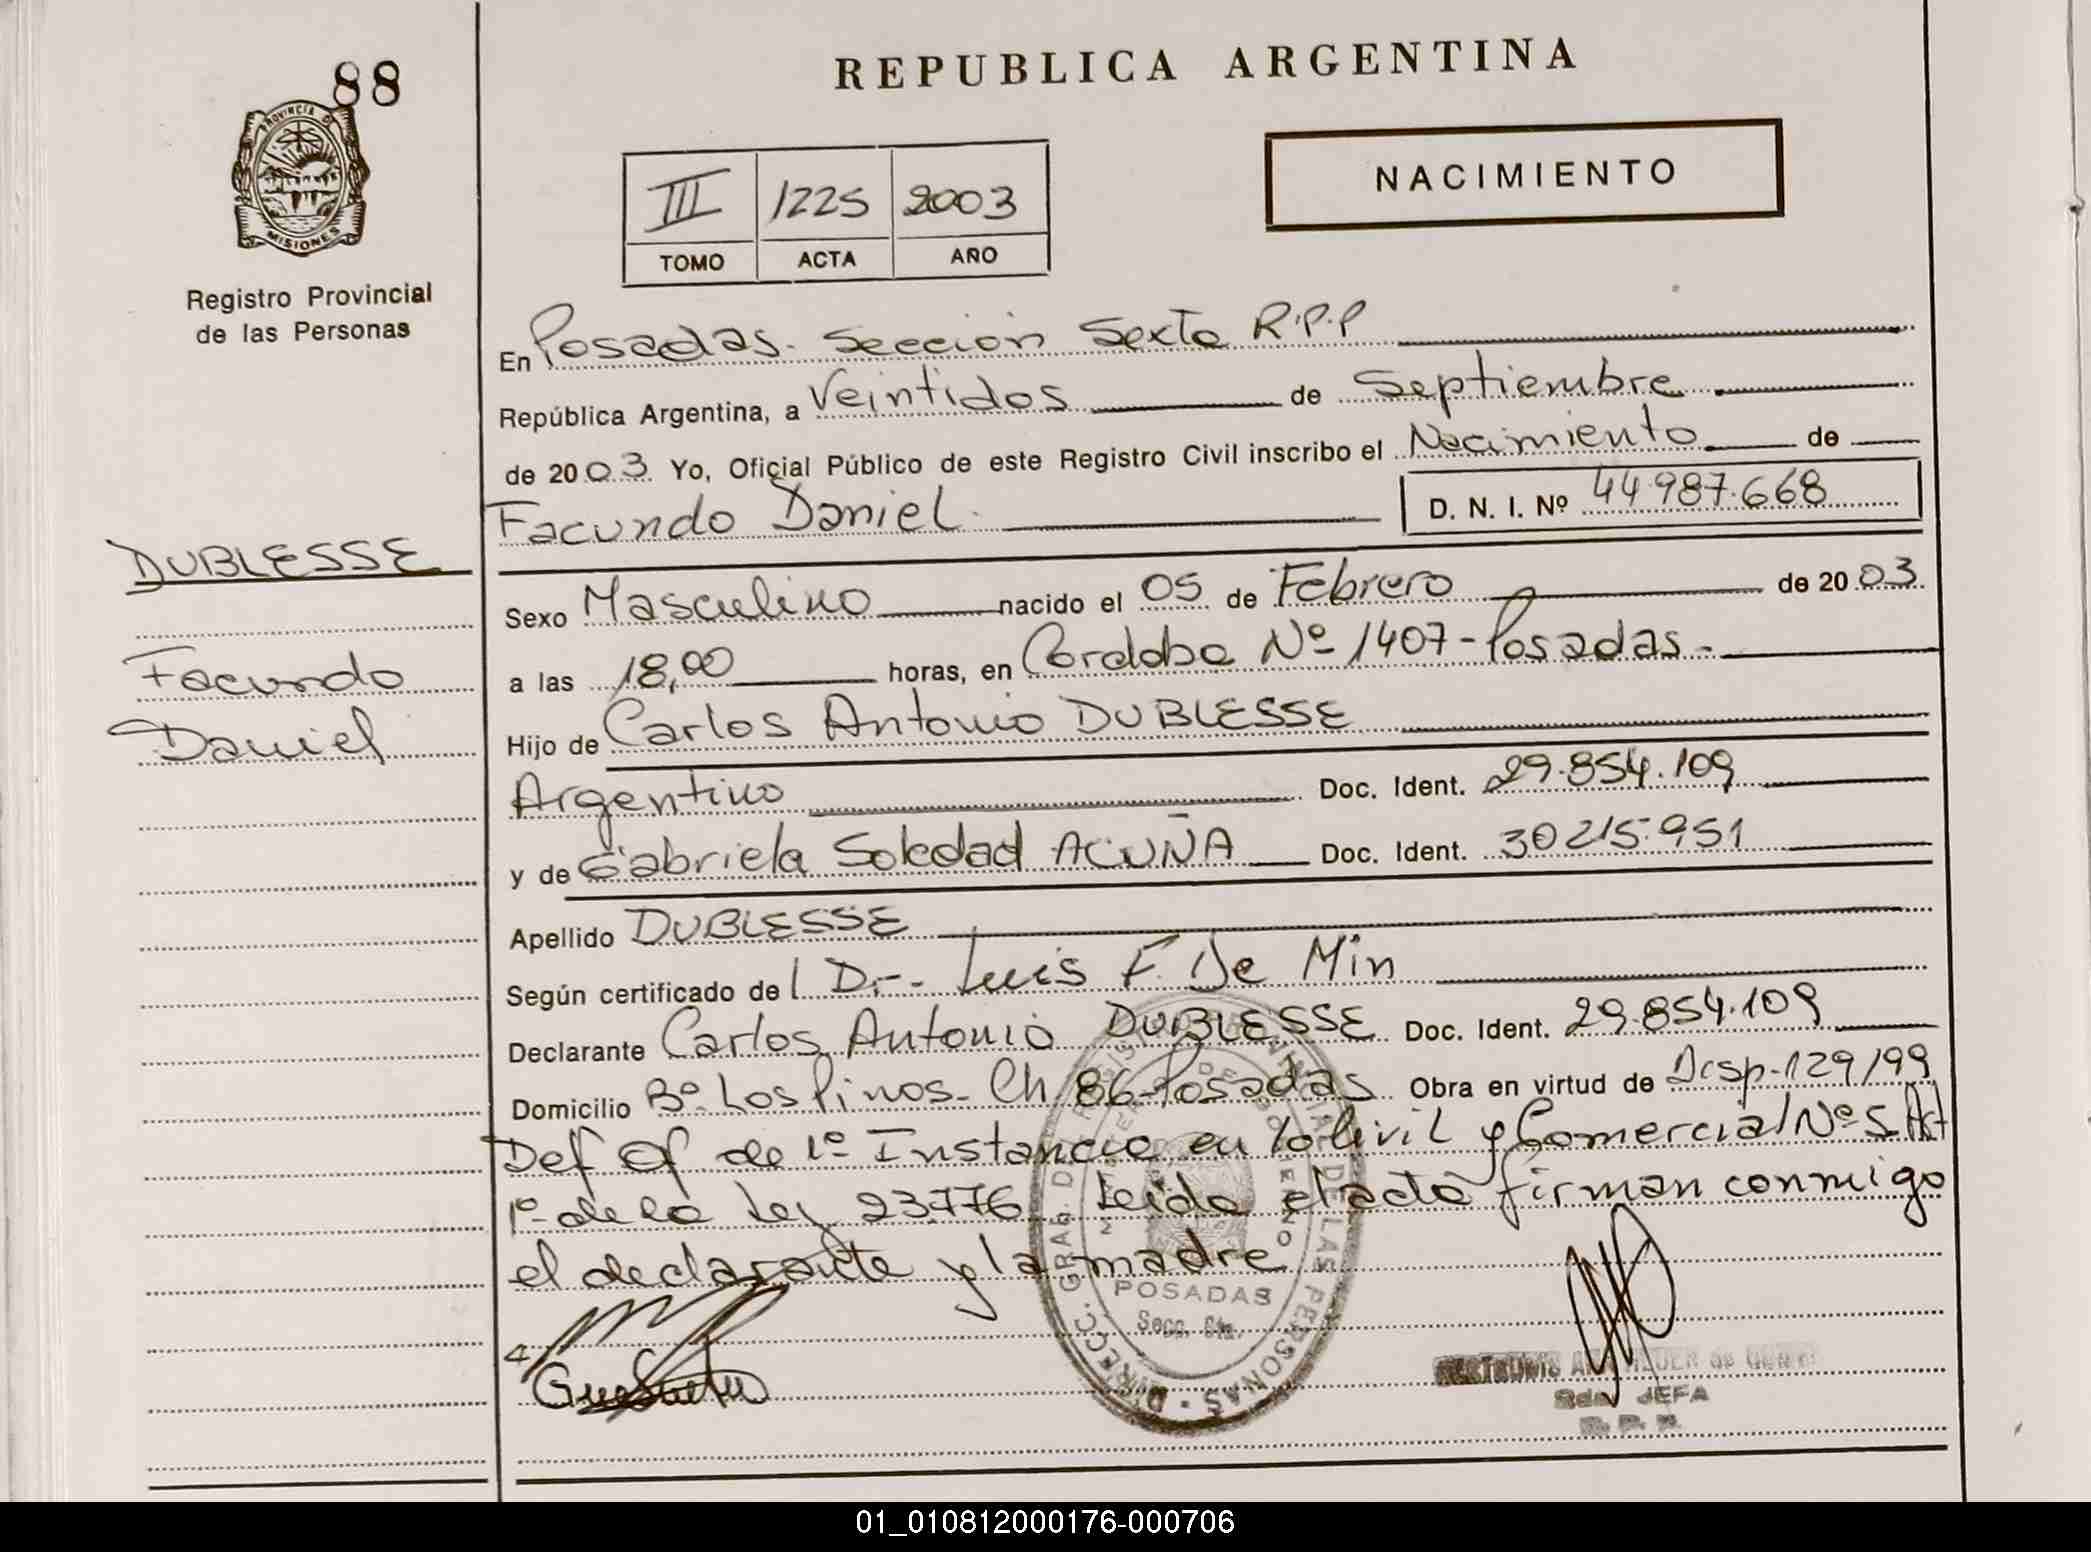 88
REPUBLICA ARGENTINA
PROVINCIA DE
MISIONES
Registro Provincial
de las Personas
NACIMIENTO
III 1225 2003
TOMO ACTA AÑO
En Posadas. Sección Sexta R.P.P
República Argentina, a Veintidos de Septiembre
de 2003 Yo, Oficial Público de este Registro Civil inscribo el Nacimiento de
Facundo Daniel. D. N. I. Nº 44.987.668
DUBLESSE
Facundo
Daniel
Sexo Masculino nacido el 05 de Febrero de 2003.
a las 18,00 horas, en Cordoba Nº 1407 - Posadas -
Hijo de Carlos Antonio DUBLESSE
Argentino Doc. Ident. 29.854.109
y de Gabriela Soledad ACUÑA Doc. Ident. 30.215.951
Apellido DUBLESSE
Según certificado del Dr.- Luis F. De Min
Declarante Carlos Antonio DUBLESSE Doc. Ident. 29.854.109
Domicilio Bº. Los Pinos - Ch. 86 - Posadas Obra en virtud de Disp. 129/99
Def Of de 1º Instancia en lo Civil y Comercial Nº 5 Art
1º de la Ley 23.776. Leida el acta firman conmigo
el declarante y la madre
POSADAS
Secc. 6ta.
DIRECC. GRAL. DEL REGISTRO PROVINCIAL DE LAS PERSONAS
2da. JEFA
R. P. P.
01_010812000176-000706